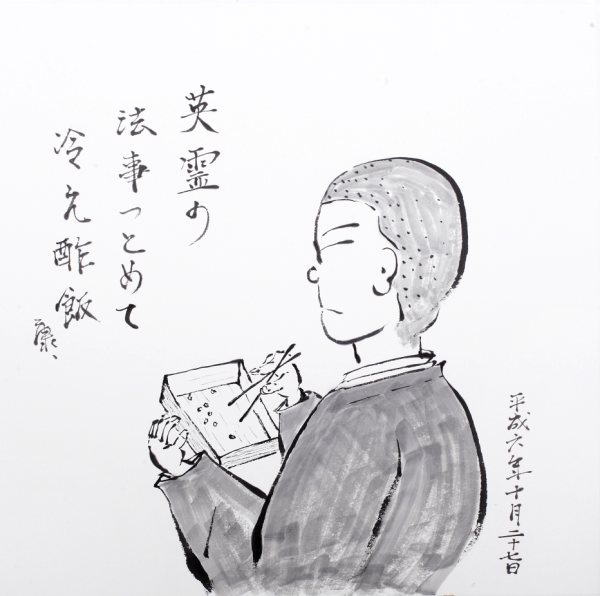 英霊の
法事つとめて
冷え酢飯
平成六年十月二十七日